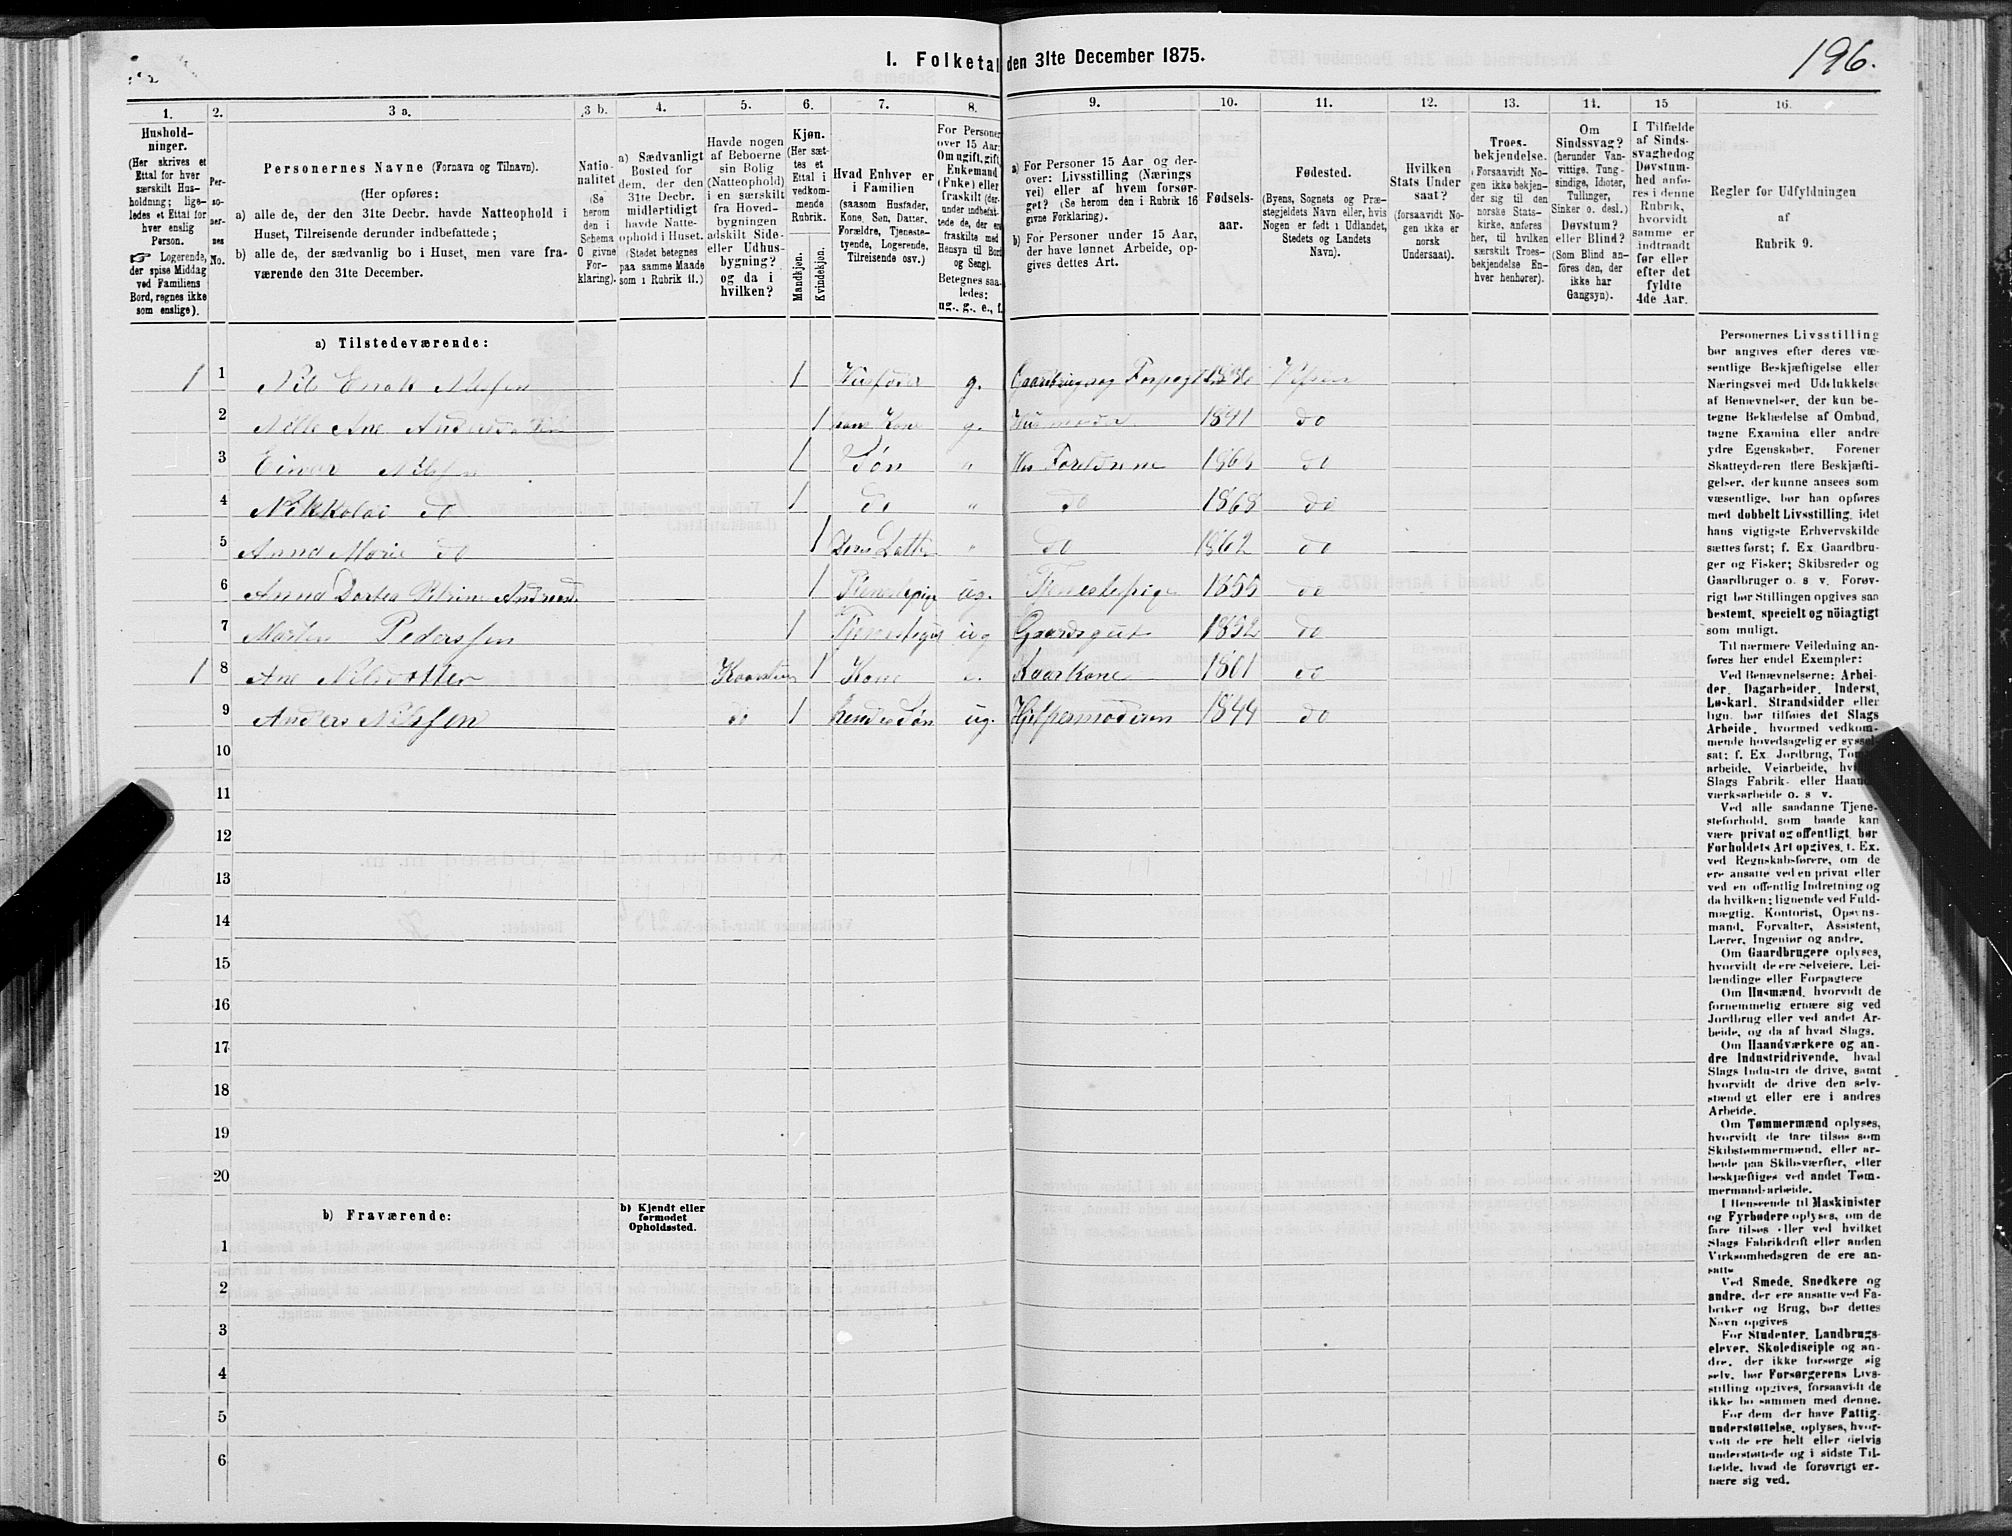 196.
I. Folketal den 31te December 1875.
1. 2. 3 a. 3 b. 4. 5. 6. 7. 8. 9. 10. 11. 12. 13. 14. 15 16.
Hushold-
ninger.
(Her skrives et
Ettal for hver
særskilt Hus-
holdning; lige-
ledes et Ettal for
hver enslig
Person.
☞ Logerende,
der spise Middag
ved Familiens
Bord, regnes ikke
som enslige).
Per-
so-
ner-
nes
No.
Personernes Navne (Fornavn og Tilnavn).
(Her opføres:
a) alle de, der den 31te Decbr. havde Natteophold i
Huset, Tilreisende derunder indbefattede;
b) alle de, der sædvanlig bo i Huset, men vare fra-
værende den 31te December.
Natio-
nalitet
(Se
herom
den i
Schema
O givne
For-
klaring).
a) Sædvanligt
Bosted for
dem, der den
31te Decbr.
midlertidigt
havde Natte-
ophold i Huset.
(Stedet betegnes
paa samme Maade
som i Rubrik 11.)
Havde nogen
af Beboerne
sin Bolig
(Natteophold)
i en særskilt
fra Hoved-
bygningen
adskilt Side-
eller Udhus-
bygning?
og da i
hvilken?
Kjøn.
(Her sæt-
tes et
Ettal i
vedkom-
mende
Rubrik.
Mandkjøn.
Kvindekjøn.
Hvad Enhver er
i Familien
(saasom Husfader,
Kone, Søn, Datter,
Forældre, Tjeneste-
tyende, Logerende,
Tilreisende osv.)
For Personer
over 15 Aar:
Om ugift, gift,
Enkemand
(Enke) eller
fraskilt (der-
under indbefat-
tede de, der ere
fraskilte med
Hensyn til Bord
og Seng).
Betegnes saa-
ledes:
ug., g., e., f.
a) For Personer 15 Aar og der-
over: Livsstilling (Nærings
vei) eller af hvem forsør-
get? (Se herom den i Rubrik 16
givne Forklaring).
b) For Personer under 15 Aar,
der have lønnet Arbeide, op-
gives dettes Art.
Fødsels-
aar.
Fødested.
(Byens, Sognets og Præ-
stegjeldets Navn eller, hvis
Nogen er født i Udlandet,
Stedets og Landets
Navn).
Hvilken
Stats Under
saat?
(forsaavidt No-
gen ikke er
norsk
Undersaat).
Troes-
bekjendelse.
(Forsaavidt No-
gen ikke bekjen-
der sig til den
norske Stats-
kirke, anføres
her, til hvilken
særskilt Troes-
bekjendelse En-
hver henhører).
Om
Sindssvag?
(herunder Van-
vittige, Tung-
sindige, Idioter,
Tullinger,
Sinker o. desl.)
Døvstum?
eller Blind?
(Som Blind an-
føres den, der
ikke har
Gangsyn).
I Tilfælde
af Sinds-
svaghed og
Døvstum-
hed anfø-
res i denne
Rubrik,
hvorvidt
samme er
indtraadt
før eller
efter det
fyldte
4de Aar.
Regler for Udfyldningen
af
Rubrik 9.
a) Tilstedeværende:
1 1 1 g. Gaardbruger og
2 1 hans Kone g. 1841 do
3 Einar Nilssen 1 Søn " Hos Forældrene do
4 Nikkolai do 1 do " do 1868 do
5 Anna Marie do 1 " do 1862 do
6 Anna Dortea Petrine 1 Tjenestepige ug. Tjenestepige 1855 do
7 Pederssen 1 ug Gaardsgut 1852 do
1 8 Ane Nilsdatter 1 Kone Kaarkone 1801 do
9 Anders Nilssen do 1 hendes Søn ug. Hjelper moderen 1844 do
10
11
12
13
14
15
16
17
18
19
20
b) Fraværende:
b) Kjendt eller
formodet
Opholdssted.
1
2
3
4
5
6
Personernes Livsstilling
bør angives efter deres væ-
sentlige Beskjæftigelse eller
Næringsvei med Udelukkelse
af Benævnelser, der kun be-
tegne Beklædelse af Ombud,
tagne Examina eller andre
ydre Egenskaber. Forener
Skatteyderen flere Beskjæfti-
gelser, der kunne ansees som
væsentlige, bør han opføres
med dobbelt Livsstilling, idet
hans vigtigste Erhvervskilde
sættes først; f. Ex. Gaardbru-
ger og Fisker; Skibsreder og
Gaardbruger o. s. v. Forøv-
rigt bør Stillingen opgives saa
bestemt, specielt og nøiagtigt
som muligt.
Til nærmere Veiledning an-
føres her endel Exempler:
Ved Benævnelserne: Arbei-
der, Dagarbeider, Inderst,
Løskarl, Strandsidder eller
lign. bør tilføies det Slags
Arbeide, hvormed vedkom-
mende hovedsagelig er syssel-
sat; f. Ex. Jordbrug,
arbeide, Veiarbeide,
Slags Fabrik- eller
værksarbeide o. s. v.
Ved alle saadanne Tjene-
steforhold, som baade kan
være privat og offentligt, bør
Forholdets Art opgives, f. Ex.
ved Regnskabsførere, om de
ere ansatte ved en privat eller
ved en offentlig Indretning og
da hvilken; lignende ved Fuld-
mægtig, Kontorist, Opsyns-
mand, Forvalter, Assistent,
Lærer, Ingeniør og andre.
Om Gaardbrugere oplyses,
hvorvidt de ere Selveiere, Lei-
lændinge eller Forpagtere.
Om Husmænd, hvorvidt de
fornemmelig ernære sig ved
Jordbrug eller ved andet Ar-
beide, og da af hvad Slags.
Om Haandværkere og an-
dre Industridrivende, hvad
Slags Industri de drive, samt
hvorvidt de drive den selv-
stændigt eller ere i andres
Arbeide.
Om Tømmermænd oplyses,
hvorvidt de fare tilsøs som
Skibstømmermænd, eller ar-
beide paa Skibsværfter, eller
beskjæftiges ved andet Tøm-
mermandsarbeide.
I Henseende til Maskinister
og Fyrbødere oplyses, om de
fare tilsøs eller ved hvilket
Slags Fabrikdrift eller anden
Virksomhedsgren de ere an-
satte.
Ved Smede, Snedkere og
andre, der ere ansatte ved Fa-
briker og Brug, bør dettes
Navn opgives
For Studenter, Landbrugs-
elever, Skoledisciple og an-
dre, der ikke forsørge sig
selv, bør Forsørgerens Livs-
stilling opgives, forsaavidt de
ikke bo sammen med denne.
For dem, der have Fattig-
understøttelse, oplyses, hvor-
vidt de ere helt eller delvis
understøttede og i sidste Til-
fælde, hvad de forøvrigt er-
nære sig ved.